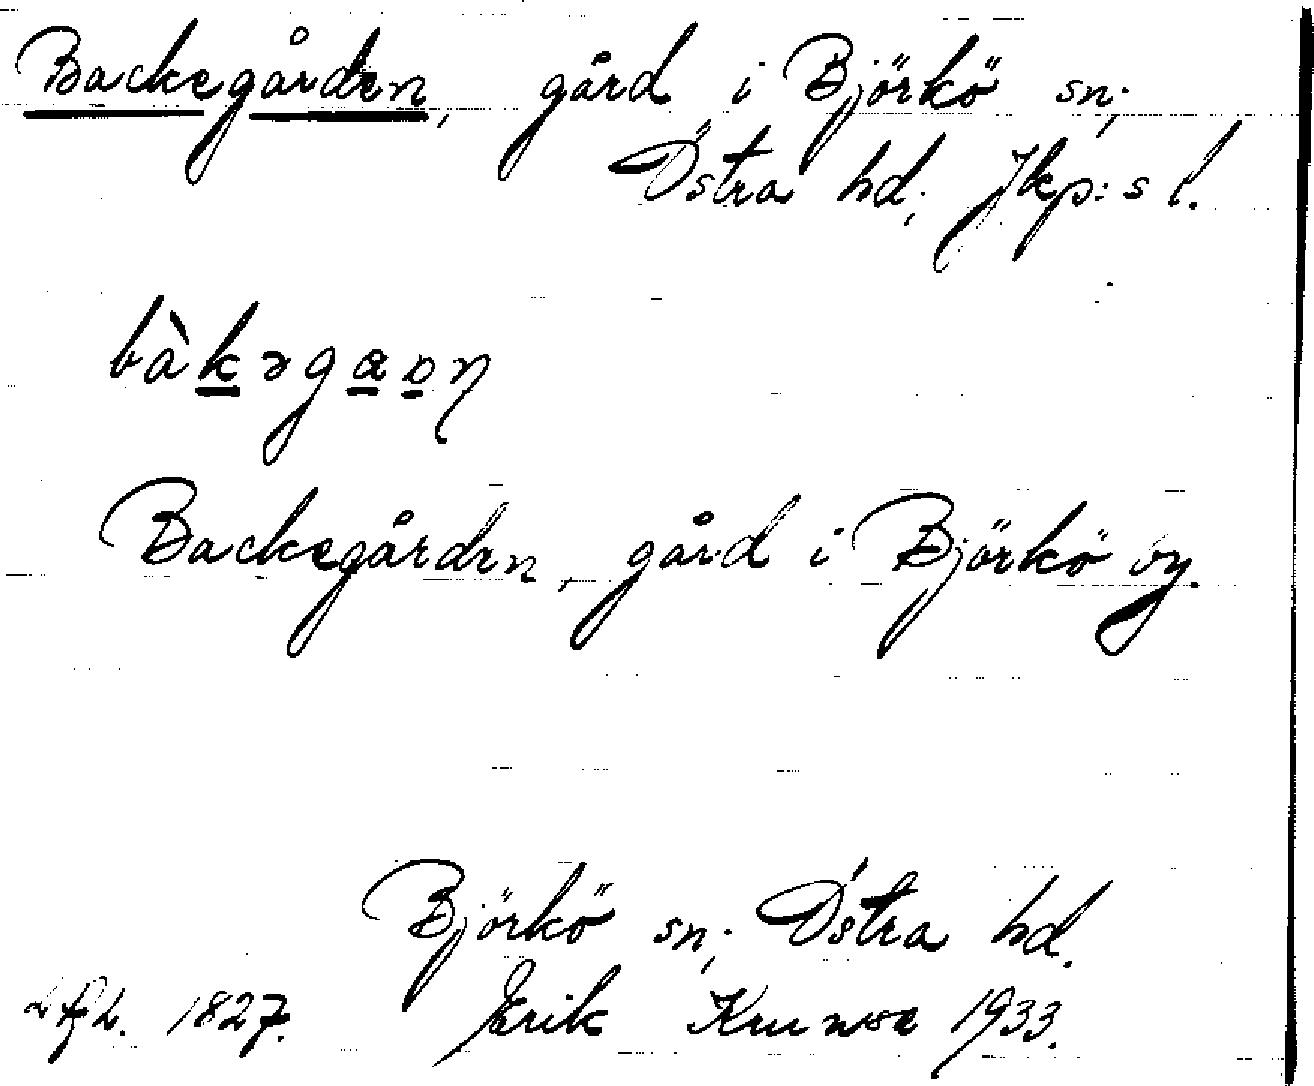 Backegården, gård i Björkö sn;
Östra hd; Jkp:s l.
bàkəgaon
Backegården, gård i Björkö by.
Björkö sn; Östra hd.
1827. Erik 1933.